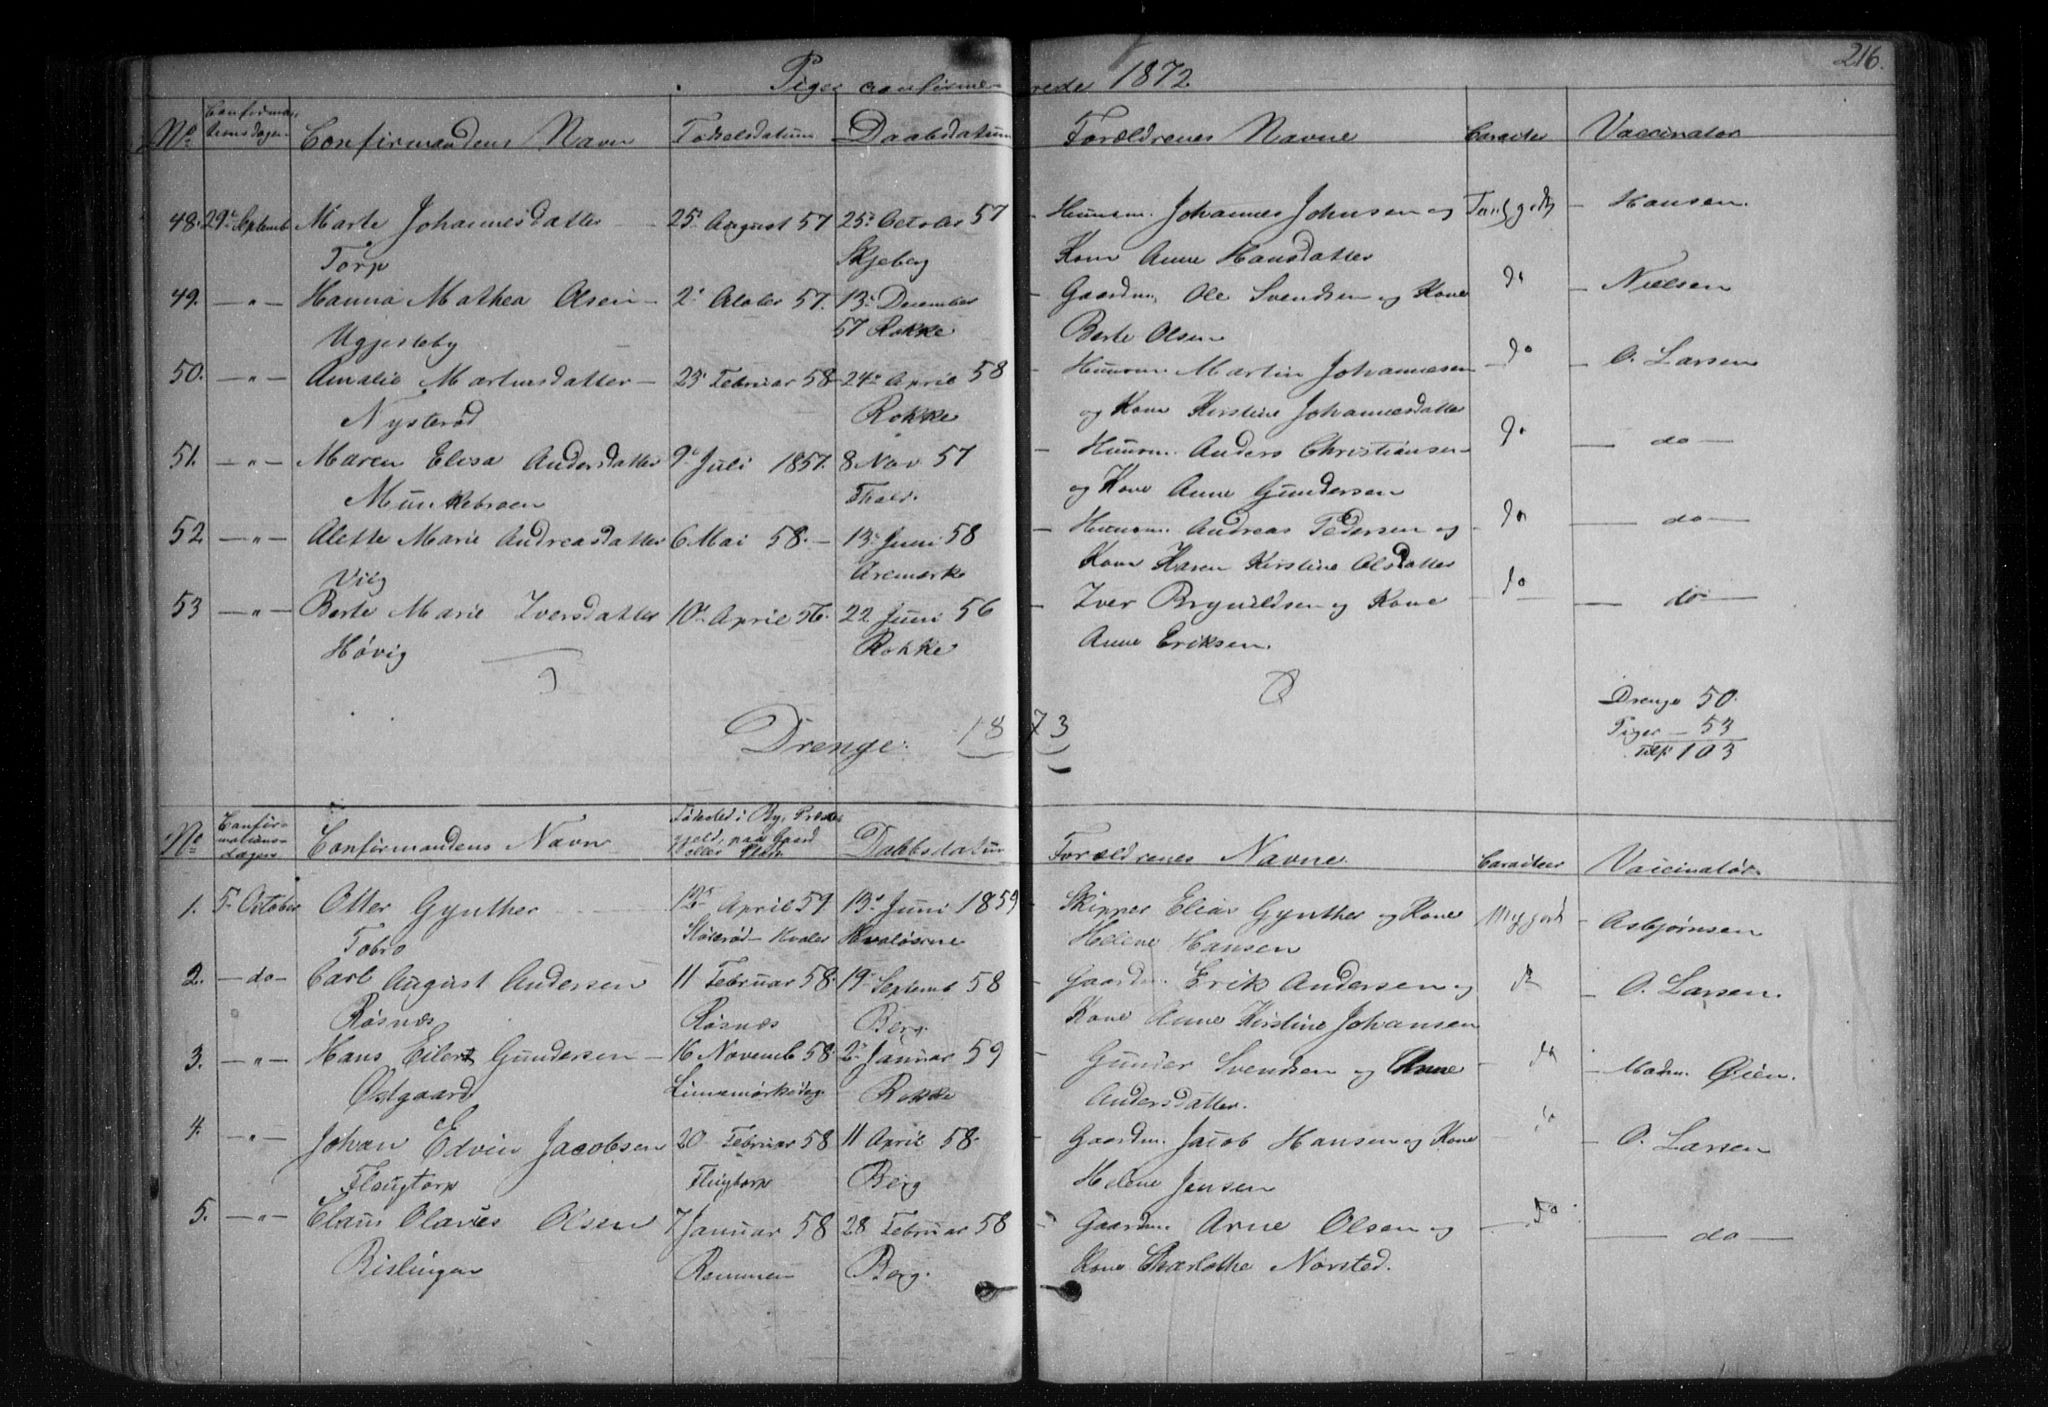 216.
Piger confirmerede 1872
No Confirmationsdagen Confirmandens Navn Fødselsdatum Daabsdatum Forældrenes Navne Caracter Vaccinatør
48. 29de Septemb Marte Johannesdatter 25d August 57 25d October 57 Huusm. Johannes Johnsen og Hansen.
Torp Skjeberg Kone Anne Hansdatter
49. — " — Hanna Mathea Olsen 2d Octoler 57. 13d December Gaardm. Ole Svendsen og Kone do Nielsen
Ugjesteby 57 Rokke Berte Olsen
50. — " — Amalie Martinsdatter 25d Februar 58 24de April 58 Huusm. Martin Johannesen do O. Larsen
Nysterød Rokke og Kone Kirstine Johannesdatter
51. — " — Maren Elisa Andersdatter 9de Juli 1857. 8 Nov 57 Huusm. Anders Christiansen do — do —
Munkebroen Fhald. og Kone Anne Gundersen
52 — " — Alette Marie Andreasdatter 6 Mai 58. — 13d Juni 58 Huusm. Andreas Pedersen og do — do —
Viig Aremarke Kone Karen Kirstine Olsdatter
53 — " — Berte Marie Iversdatter 10d April 56. 22 Juni 56 Iver Brynildsen og Kone do — do —
Høvig Rokke Anne Eriksen.
Drenge 50.
Piger — 53
Tils. 103
Drenge. 1873
No Confirmationsdagen Confirmandens Navn Fødested i By, Præstegjeld, paa Gaard eller Plads Daabsdatum Forældrenes Navne Caracteer Vaccinatør.
1. 5te October Otter Gynther 12te April 59 13d Juni 1859 Skipper Elias Gynther og Kone Asbjørnsen
Tobro Hvaløerne Helene Hansen
2. — do — Carl August Andersen 11 Februar 58. 19de Septemb 58 Gaardm. Erik Andersen og do O. Larsen.
Røsnæs Røsnæs Berg Kone Anne Kirstine Johansen
3. — " — Hans Eilert Gundersen — 16 Novemb 58. 2d Januar 59 Gunder Svendsen og Anne do Madm. Øien.
Østgaard Rokke Andersdatter.
4. — " — Johan Edvin Jacobsen 20 Februar 58 11 April 58. Gaardm. Jacob Hansen og Kone do O. Larsen
Flaugtorp Berg Helene Jensen
5. — " — Claus Olaves Olsen 7 Januar 58 28 Februar 58 Gaardm. Arne Olsen og do — do —
Bislingen Rommen Berg. Kone Charlothe Norsted.